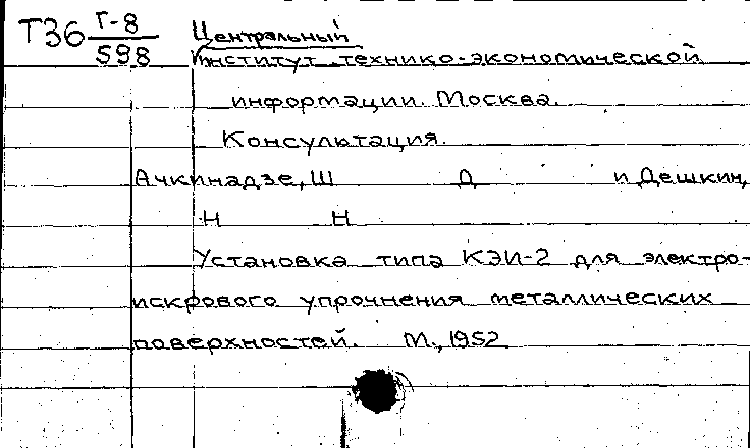 Т36 Г-8 Центральный
598 Институт технико-экономической
информации. Москва.
Консультация.
Ачкинадзе, Ш Д и Дешкин,
Н Н
Установка типа КЭИ-2 для электро-
искрового упрочнения металлических
поверхностей. М., 1952